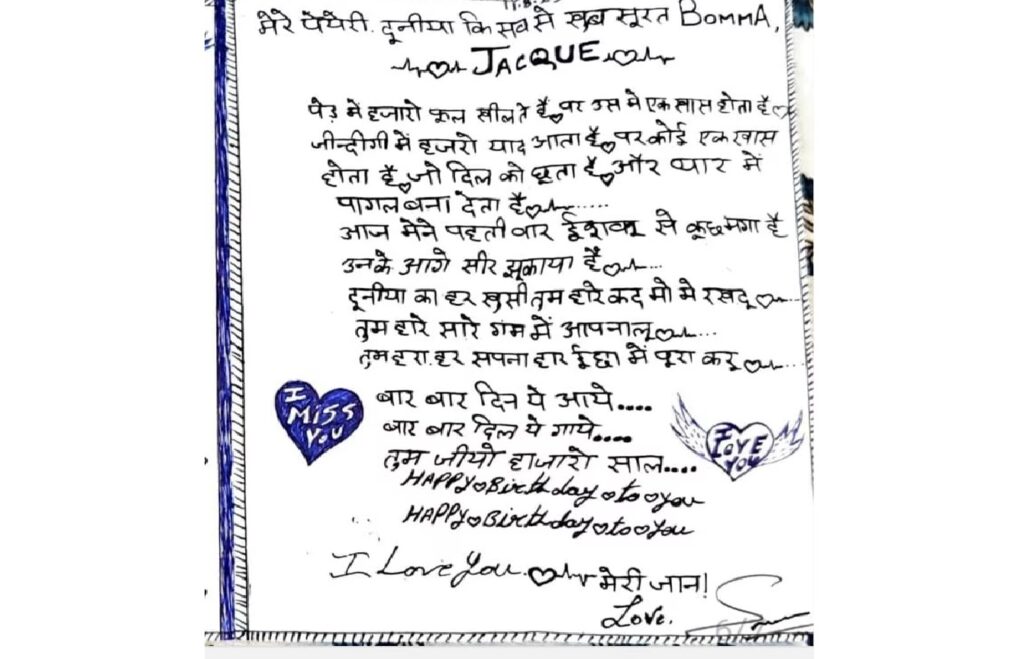 मेरे पेयेरी. दूनीया कि सब से खुब सूरत BOMMA,
JACQUE
पेड़ मे हजारो फूल खीलते है पर उस मे एक खास होता है
जीन्दीगी में हजरो याद आता है पर कोई एक खास
होता है जो दिल को छूता है और प्यार में
पागल बना देता है.....
आज मेने पहली बार से कूछ मगा है
उनके आगे सीर झूकाया है...
दूनीया का हर खुसी तुम हारे कद मो मे रखदू...
तुम हारे सारे गम में आपनालू....
तुम हरा. हर सपना हार ईछा में पूरा करू....
I MISS YOU
बार बार दिन ये आये....
बार बार दिल ये गाये....
I LOVE YOU
तुम जीयो हाजारो साल....
HAPPY Birthday to you
HAPPY Birthday to you
I Love You. मेरी जान!
Love.